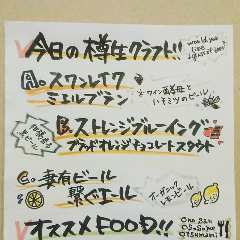 今日の樽生クラフト!!
would you like a glass of beer?
A。スワンレイク
ミエルブラン
※ワイン酵母と
ハチミツのビール
B。ストレンジブルーイング
ブラッドオレンジチョコレートスタウト
黒ビール
C。妻有ビール
繋ぐエール
オーガニック
レモンビール
オススメFOOD!!
Ona San
Osusume
Otsumami